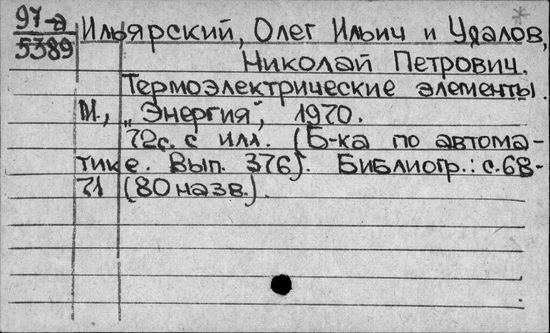 97-а
5389
Ильярский, Олег Ильич и Удалов,
Николай Петрович.
Термоэлектрические элементы.
М., „Энергия", 1970.
72с. с илл. (Б-ка по автома-
тике. Вып. 376). Библиогр.: с.68-
71 (80 назв.).